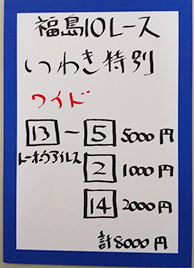 福島10レース
いわき特別
ワイド
13 － 5 5000円
トーホウアイレス 2 1000円
14 2000円
計8000円